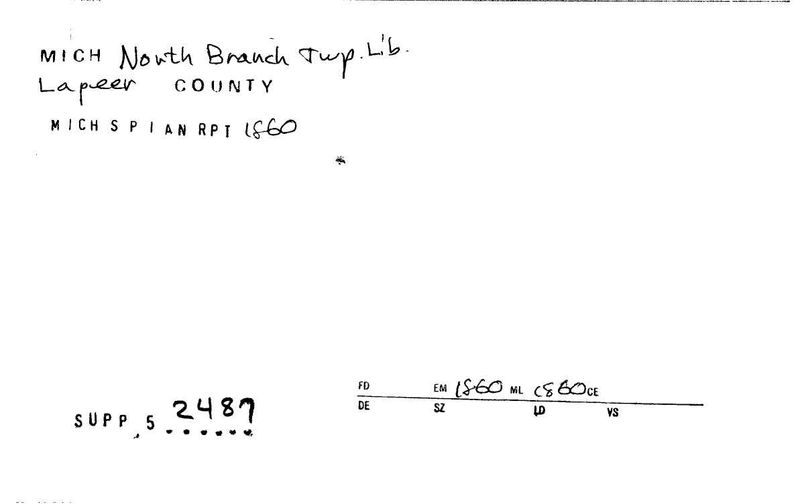 MICH North Branch Twp. Lib.
Lapeer COUNTY
MICH S P I AN RPT 1860
FD EM 1860 ML 1860 CE
DE SZ LD VS
SUPP. 5 2487